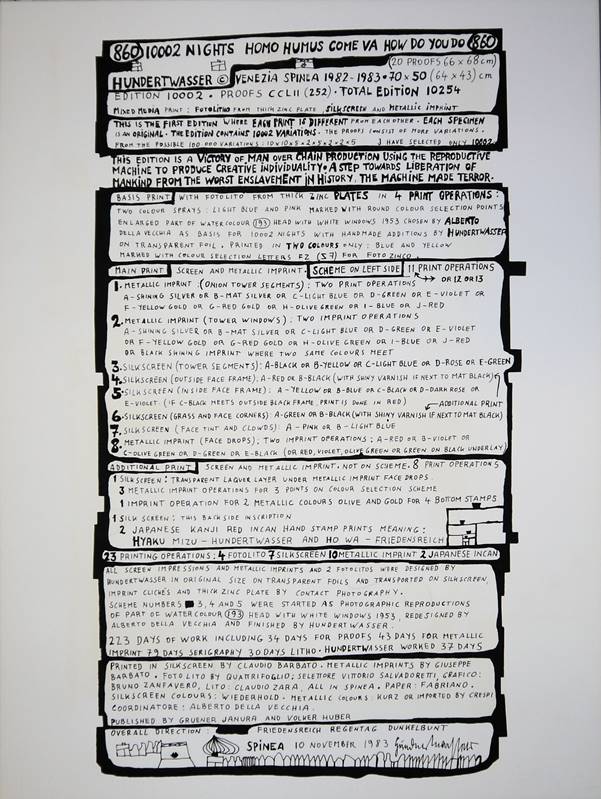 860 10002 NIGHTS HOMO HUMUS COME VA HOW DO YOU DO 860
(20 PROOFS 66 x 68 cm)
HUNDERTWASSER © VENEZIA SPINEA 1982-1983 • 70 x 50 (64 x 43) cm
EDITION 10002 • PROOFS CCLII (252) • TOTAL EDITION 10254
MIXED MEDIA PRINT: FOTOLITO FROM THICK ZINC PLATE, SILKSCREEN AND METALLIC IMPRINT
THIS IS THE FIRST EDITION WHERE EACH PRINT IS DIFFERENT FROM EACH OTHER. EACH SPECIMEN
IS AN ORIGINAL. THE EDITION CONTAINS 10002 VARIATIONS. THE PROOFS CONSIST OF MORE VARIATIONS.
FROM THE POSSIBLE 100 000 VARIATIONS: 10x10x5x2x5x2x2x5 I HAVE SELECTED ONLY 10002
THIS EDITION IS A VICTORY OF MAN OVER CHAIN PRODUCTION USING THE REPRODUCTIVE
MACHINE TO PRODUCE CREATIVE INDIVIDUALITY. A STEP TOWARDS LIBERATION OF
MANKIND FROM THE WORST ENSLAVEMENT IN HISTORY, THE MACHINE MADE TERROR.
BASIS PRINT WITH FOTOLITO FROM THICK ZINC PLATES IN 4 PRINT OPERATIONS:
TWO COLOUR SPRAYS: LIGHT BLUE AND PINK MARKED WITH ROUND COLOUR SELECTION POINTS
ENLARGED PART OF WATERCOLOUR (193) HEAD WITH WHITE WINDOWS 1953 CHOSEN BY ALBERTO
DELLA VECCHIA AS BASIS FOR 10002 NIGHTS WITH HANDMADE ADDITIONS BY HUNDERTWASSER
ON TRANSPARENT FOIL. PRINTED IN TWO COLOURS ONLY: BLUE AND YELLOW
MARKED WITH COLOUR SELECTION LETTERS FZ (S7) FOR FOTO ZINCO.
MAIN PRINT SCREEN AND METALLIC IMPRINT. SCHEME ON LEFT SIDE 11 PRINT OPERATIONS
OR 12 OR 13
1. METALLIC IMPRINT: (ONION TOWER SEGMENTS): TWO PRINT OPERATIONS
A-SHINING SILVER OR B-MAT SILVER OR C-LIGHT BLUE OR D-GREEN OR E-VIOLET OR
F-YELLOW GOLD OR G-RED GOLD OR H-OLIVE GREEN OR I-BLUE OR J-RED
2. METALLIC IMPRINT (TOWER WINDOWS): TWO IMPRINT OPERATIONS
A-SHINING SILVER OR B-MAT SILVER OR C-LIGHT BLUE OR D-GREEN OR E-VIOLET
OR F-YELLOW GOLD OR G-RED GOLD OR H-OLIVE GREEN OR I-BLUE OR J-RED
OR BLACK SHINING IMPRINT WHERE TWO SAME COLOURS MEET
3. SILKSCREEN (TOWER SEGMENTS): A-BLACK OR B-YELLOW OR C-LIGHT BLUE OR D-ROSE OR E-GREEN
4. SILKSCREEN (OUTSIDE FACE FRAME): A-RED OR B-BLACK (WITH SHINY VARNISH IF NEXT TO MAT BLACK)
5. SILKSCREEN (INSIDE FACE FRAME): A-YELLOW OR B-BLUE OR C-BLACK OR D-DARK ROSE OR
E-VIOLET (IF C-BLACK MEETS OUTSIDE BLACK FRAME, PRINT IS DONE IN RED) ADDITIONAL PRINT
6. SILKSCREEN (GRASS AND FACE CORNERS): A-GREEN OR B-BLACK (WITH SHINY VARNISH IF NEXT TO MAT BLACK)
7. SILKSCREEN (FACE TINT AND CLOWDS): A-PINK OR B-LIGHT BLUE
8. METALLIC IMPRINT (FACE DROPS); TWO IMPRINT OPERATIONS: A-RED OR B-VIOLET OR
C-OLIVE GREEN OR D-GREEN OR E-BLACK (OR RED, VIOLET, OLIVE GREEN OR GREEN ON BLACK UNDERLAY)
ADDITIONAL PRINT SCREEN AND METALLIC IMPRINT. NOT ON SCHEME. 8 PRINT OPERATIONS
1 SILKSCREEN: TRANSPARENT LAQUER LAYER UNDER METALLIC IMPRINT FACE DROPS
3 METALLIC IMPRINT OPERATIONS FOR 3 POINTS ON COLOUR SELECTION SCHEME
1 IMPRINT OPERATION FOR 2 METALLIC COLOURS OLIVE AND GOLD FOR 4 BOTTOM STAMPS
1 SILK SCREEN: THIS BACK SIDE INSCRIPTION
2 JAPANESE KANJI RED INCAN HAND STAMP PRINTS MEANING:
HYAKU MIZU - HUNDERTWASSER AND HO WA - FRIEDENSREICH
23 PRINTING OPERATIONS: 4 FOTOLITO 7 SILKSCREEN 10 METALLIC IMPRINT 2 JAPANESE INCAN
ALL SCREEN IMPRESSIONS AND METALLIC IMPRINTS AND 2 FOTOLITOS WERE DESIGNED BY
HUNDERTWASSER IN ORIGINAL SIZE ON TRANSPARENT FOILS AND TRANSPORTED ON SILKSCREEN,
IMPRINT CLICHÉS AND THICK ZINC PLATE BY CONTACT PHOTOGRAPHY.
SCHEME NUMBERS 3, 4 AND 5 WERE STARTED AS PHOTOGRAPHIC REPRODUCTIONS
OF PART OF WATERCOLOUR (193) HEAD WITH WHITE WINDOWS 1953, REDESIGNED BY
ALBERTO DELLA VECCHIA AND FINISHED BY HUNDERTWASSER.
223 DAYS OF WORK INCLUDING 34 DAYS FOR PROOFS 43 DAYS FOR METALLIC
IMPRINT 79 DAYS SERIGRAPHY 30 DAYS LITHO • HUNDERTWASSER WORKED 37 DAYS
PRINTED IN SILKSCREEN BY CLAUDIO BARBATO. METALLIC IMPRINTS BY GIUSEPPE
BARBATO. FOTOLITO BY QUATTRIFOGLIO; SELETTORE VITTORIO SALVADORETTI, GRAFICO:
BRUNO ZANFAVERO, LITO: CLAUDIO ZARA, ALL IN SPINEA. PAPER: FABRIANO.
SILKSCREEN COLOURS: WIEDERHOLD. METALLIC COLOURS: KURZ OR IMPORTED BY CRESPI
COORDINATORE: ALBERTO DELLA VECCHIA.
PUBLISHED BY GRUENER JANURA AND VOLKER HUBER
OVERALL DIRECTION: FRIEDENSREICH REGENTAG DUNKELBUNT
SPINEA 10 NOVEMBER 1983